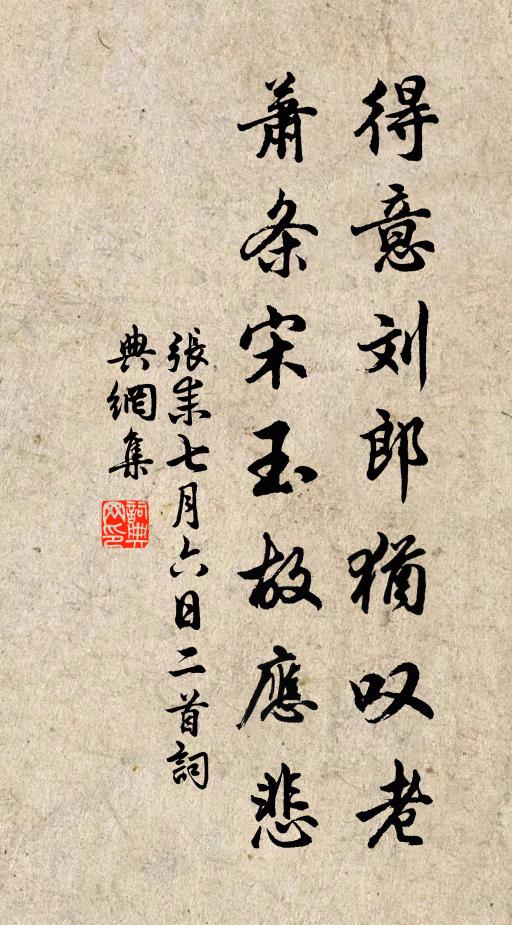 得意刘郎犹叹老
萧条宋玉故應悲
張耒七月六日二首詞
典網集
詞典網印